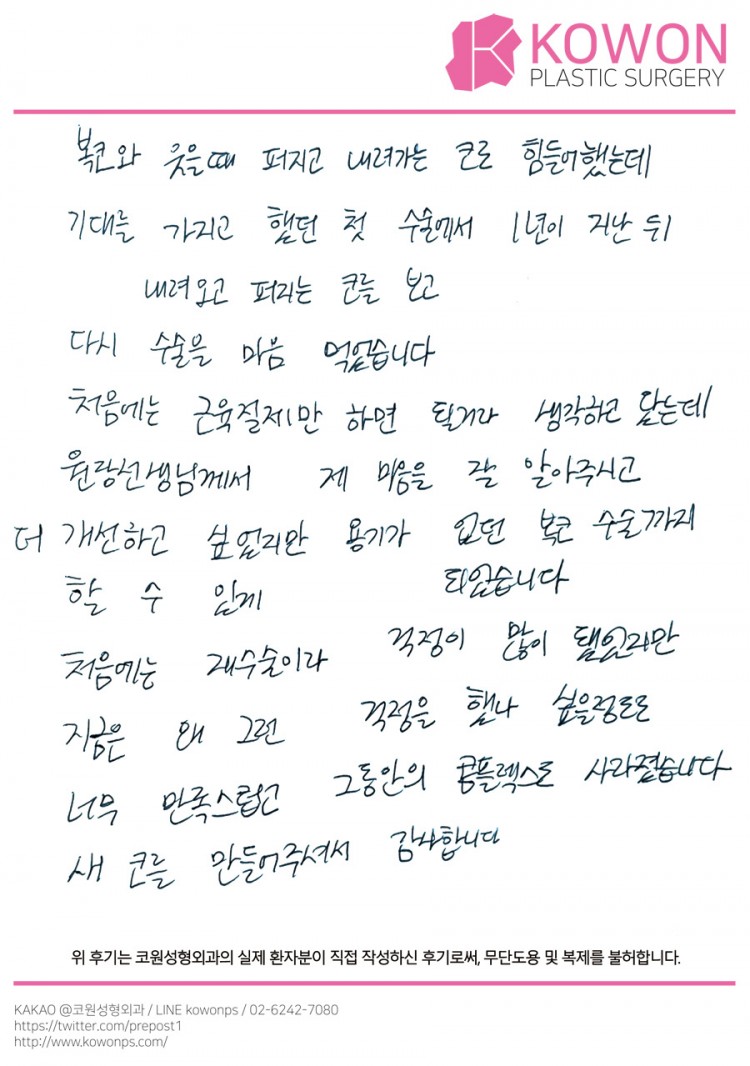 KOWON
PLASTIC SURGERY
복코와 웃을때 퍼지고 내려가는 코로 힘들어했는데
기대를 가지고 했던 첫 수술에서 1년이 지난 뒤
내려오고 퍼지는 코를 보고
다시 수술을 마음 먹었습니다
처음에는 근육절제만 하면 될거라 생각하고 왔는데
원장선생님께서 제 마음을 잘 알아주시고
더 개선하고 싶었지만 용기가 없던 복코 수술까지
할 수 있게 되었습니다
처음에는 재수술이라 걱정이 많이 됐었지만
지금은 왜 그런 걱정을 했나 싶을정도로
너무 만족스럽고 그동안의 콤플렉스도 사라졌습니다
새 코를 만들어주셔서 감사합니다
위 후기는 코원성형외과의 실제 환자분이 직접 작성하신 후기로써, 무단도용 및 복제를 불허합니다.
KAKAO @코원성형외과 / LINE kowonps / 02-6242-7080
https://twitter.com/prepost1
http://www.kowonps.com/